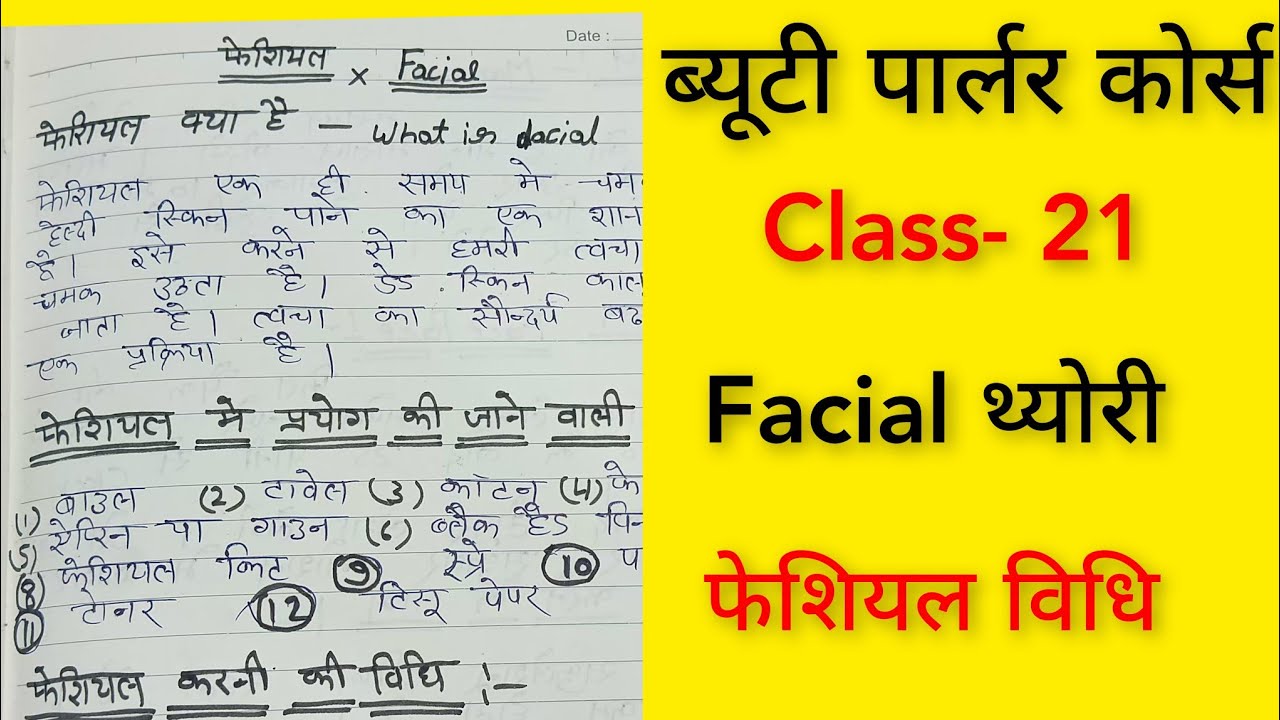 Date :
फेशियल × Facial
फेशियल क्या है — What is facial
फेशियल एक ही समय मे
हेल्दी स्किन पाने का एक
है। इसे करने से हमरी त्वचा
चमक उठता है। डेड स्किन
जाता है। त्वचा का सौन्दर्य
एक प्रक्रिया है।
फेशियल मे प्रयोग की जाने वाली
(1) बाउल (2) टावेल (3) काटन (4)
(5) ऐप्रिन या गाउन (6) ब्लैक हैड
(8) फेशियल किट (9) स्प्रे (10)
(11) टोनर (12) टिसू पेपर
फेशियल करनी की विधि :-
ब्यूटी पार्लर कोर्स
Class- 21
Facial थ्योरी
फेशियल विधि